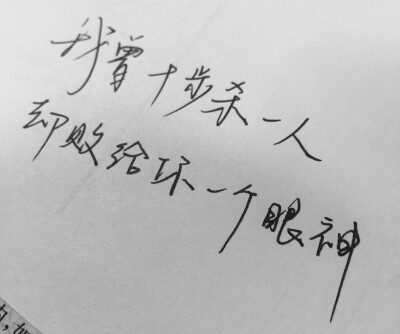 我曾十步杀一人
却败给你一个眼神